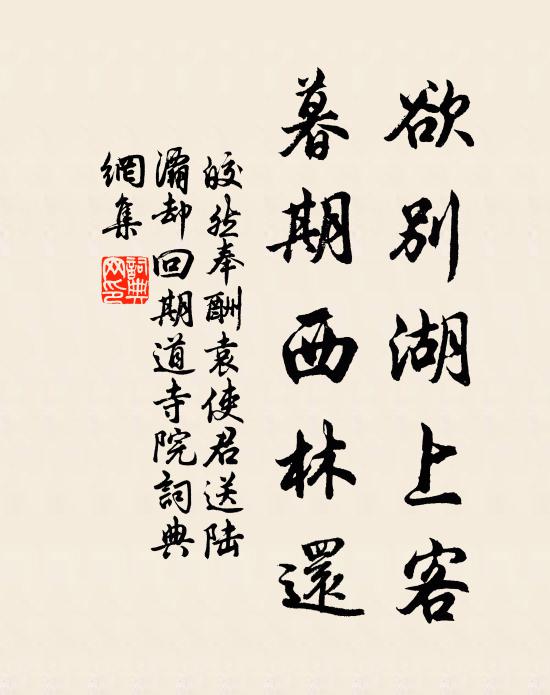 欲别湖上客
暮期西林還
皎然奉酬袁使君送陆
灞却回期道寺院詞典
網集
詞典網印